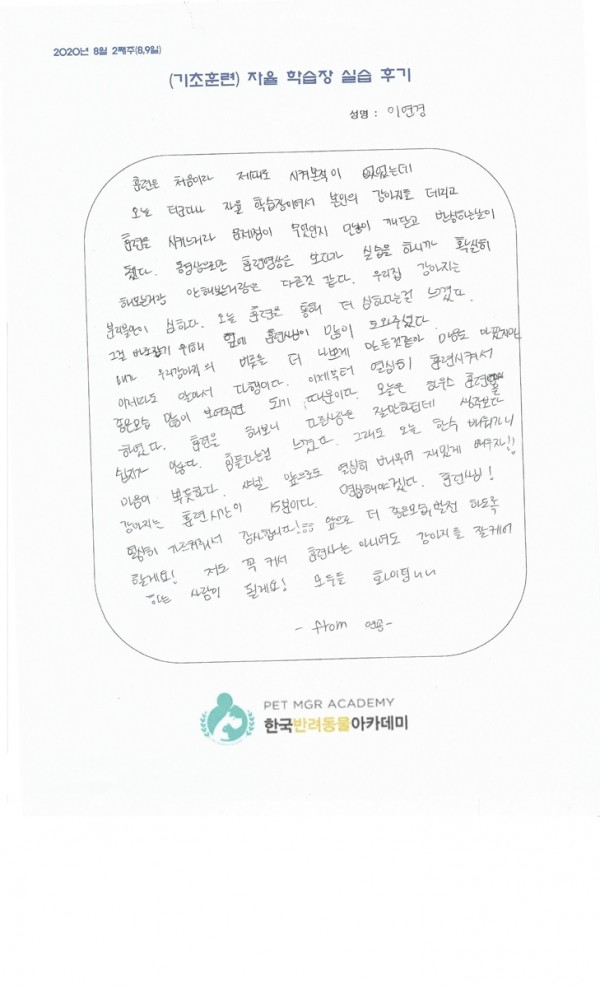 2020년 8월 2째주(8,9일)
(기초훈련) 자율 학습장 실습 후기
성명 : 이연경
훈련은 처음이라 제대로 시켜본적이 없었는데
오늘 자율 학습장이여서 본인의 강아지를 데리고
훈련을 시키느거라 문제점이 무엇인지 많이 깨닫고 반성하는날이
됬다. 동영상으로만 훈련영상은 보다가 실습을 하니까 확실히
해보는거랑 안해보는거랑은 다른것 같다. 우리집 강아지는
분리불안이 심하다. 오늘 훈련을 통해 더 심하다는걸 느꼈다.
그걸 바로잡기 위해 옆에 훈련사님이 많이 도와주셨다.
내가 우리강아지의 버릇을 더 나쁘게 만든것같아 마음도 아팠지만
이제라도 알아서 다행이다. 이제부터 열심히 훈련시켜서
좋은모습 많이 보여주면 되기 때문이다. 오늘은 하우스 훈련을
하였다. 훈련을 해보니 다른사람은 잘만하던데 생각보다
쉽지가 않다. 힘들다는걸 느꼈다. 그래도 오늘 한수 배워가니
마음이 뿌듯하다. 샤넬 앞으로도 열심히 배우며 재밌게 배우자!!
강아지는 훈련시간이 15분이다. 명심해야겠다. 훈련사님!
열심히 가르쳐줘서 감사합니다! 앞으로 더 좋은모습, 발전 하도록
할게요! 저도 꼭 커서 훈련사는 아니여도 강아지를 잘케어
하는 사람이 될게요! 모두들 화이팅
- from 연경 -
PET MGR ACADEMY
한국반려동물아카데미